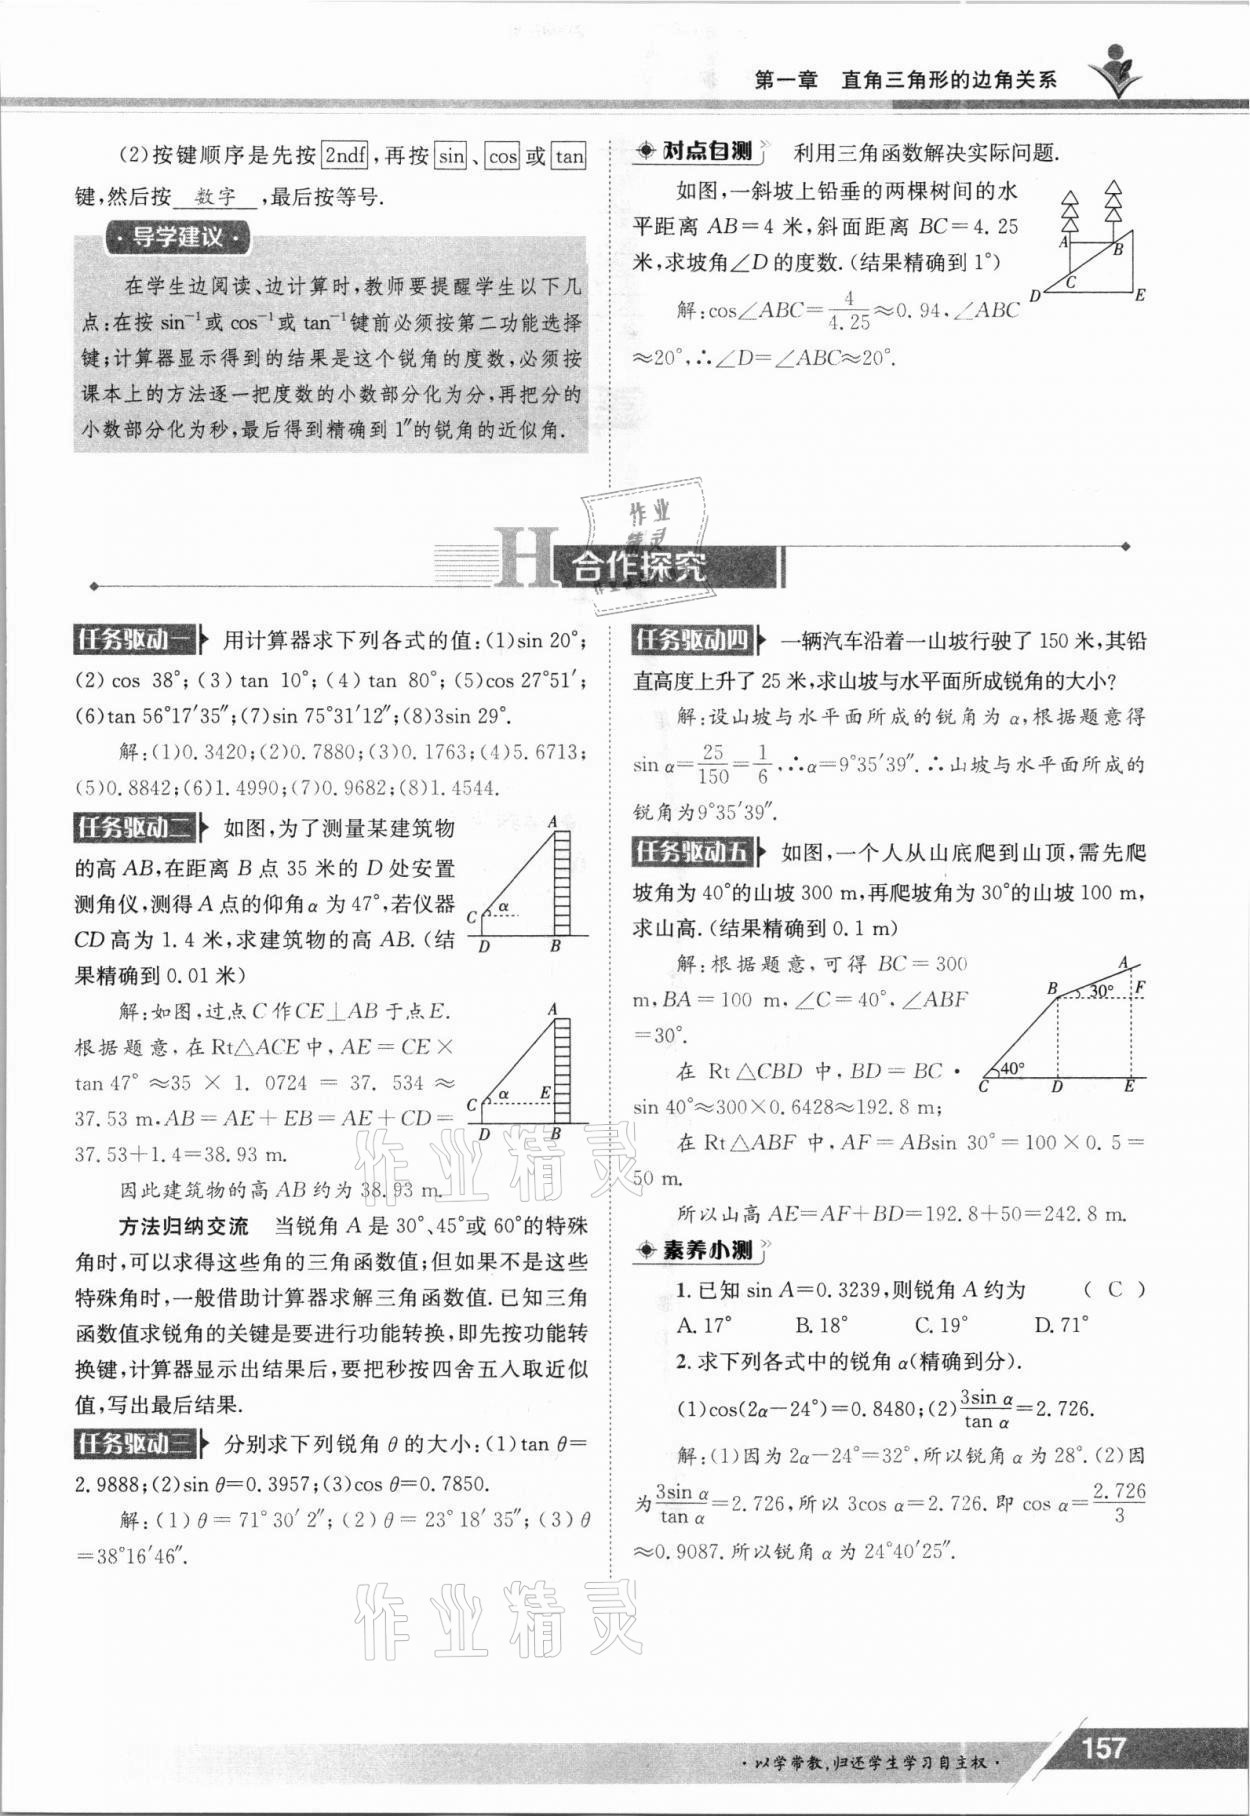 第一章 直角三角形的边角关系
(2)按键顺序是先按2ndf,再按sin、cos或tan
键,然后按 数字 ,最后按等号.
·导学建议·
在学生边阅读、边计算时,教师要提醒学生以下几
点:在按 sin⁻¹或 cos⁻¹或 tan⁻¹键前必须按第二功能选择
键;计算器显示得到的结果是这个锐角的度数,必须按
课本上的方法逐一把度数的小数部分化为分,再把分的
小数部分化为秒,最后得到精确到 1″的锐角的近似角.
对点自测 利用三角函数解决实际问题.
如图,一斜坡上铅垂的两棵树间的水
平距离 AB=4 米,斜面距离 BC=4.25
米,求坡角∠D的度数.(结果精确到 1°)
A B C D E
解:cos∠ABC=4/4.25≈0.94,∠ABC
≈20°,∴∠D=∠ABC≈20°.
H 合作探究
作业
精灵
任务驱动一 用计算器求下列各式的值:(1)sin 20°;
(2) cos 38°;(3) tan 10°;(4) tan 80°;(5)cos 27°51′;
(6)tan 56°17′35″;(7)sin 75°31′12″;(8)3sin 29°.
解:(1)0.3420;(2)0.7880;(3)0.1763;(4)5.6713;
(5)0.8842;(6)1.4990;(7)0.9682;(8)1.4544.
任务驱动二 如图,为了测量某建筑物
的高 AB,在距离 B 点 35 米的 D 处安置
测角仪,测得 A 点的仰角α 为 47°,若仪器
CD 高为 1.4 米,求建筑物的高 AB.(结
果精确到 0.01 米)
A C α D B
解:如图,过点 C 作 CE⊥AB 于点 E.
根据题意,在 Rt△ACE 中,AE=CE×
tan 47°≈35 × 1.0724 = 37.534 ≈
37.53 m.AB=AE+EB=AE+CD=
37.53+1.4=38.93 m.
A C α E D B
因此建筑物的高 AB 约为 38.93 m.
方法归纳交流 当锐角 A 是 30°、45°或 60°的特殊
角时,可以求得这些角的三角函数值;但如果不是这些
特殊角时,一般借助计算器求解三角函数值.已知三角
函数值求锐角的关键是要进行功能转换,即先按功能转
换键,计算器显示出结果后,要把秒按四舍五入取近似
值,写出最后结果.
任务驱动三 分别求下列锐角 θ 的大小:(1)tan θ=
2.9888;(2)sin θ=0.3957;(3)cos θ=0.7850.
解:(1)θ=71°30′2″;(2)θ=23°18′35″;(3)θ
=38°16′46″.
任务驱动四 一辆汽车沿着一山坡行驶了 150 米,其铅
直高度上升了 25 米,求山坡与水平面所成锐角的大小?
解:设山坡与水平面所成的锐角为 α,根据题意得
sin α=25/150=1/6,∴α=9°35′39″.∴山坡与水平面所成的
锐角为9°35′39″.
任务驱动五 如图,一个人从山底爬到山顶,需先爬
坡角为 40°的山坡 300 m,再爬坡角为 30°的山坡 100 m,
求山高.(结果精确到 0.1 m)
解:根据题意,可得 BC=300
m,BA=100 m,∠C=40°,∠ABF
=30°.
A B 30° F 40° C D E
在 Rt△CBD 中,BD=BC·
sin 40°≈300×0.6428≈192.8 m;
在 Rt△ABF 中,AF=ABsin 30°=100×0.5=
50 m.
所以山高 AE=AF+BD=192.8+50=242.8 m.
素养小测
1.已知 sin A=0.3239,则锐角 A 约为 ( C )
A.17° B.18° C.19° D.71°
2.求下列各式中的锐角 α(精确到分).
(1)cos(2α-24°)=0.8480;(2)3sin α/tan α=2.726.
解:(1)因为 2α-24°=32°,所以锐角 α 为 28°.(2)因
为3sin α/tan α=2.726,所以 3cos α=2.726.即 cos α=2.726/3
≈0.9087.所以锐角 α 为 24°40′25″.
作业精灵
作业精灵
·以学带教,归还学生学习自主权·
157